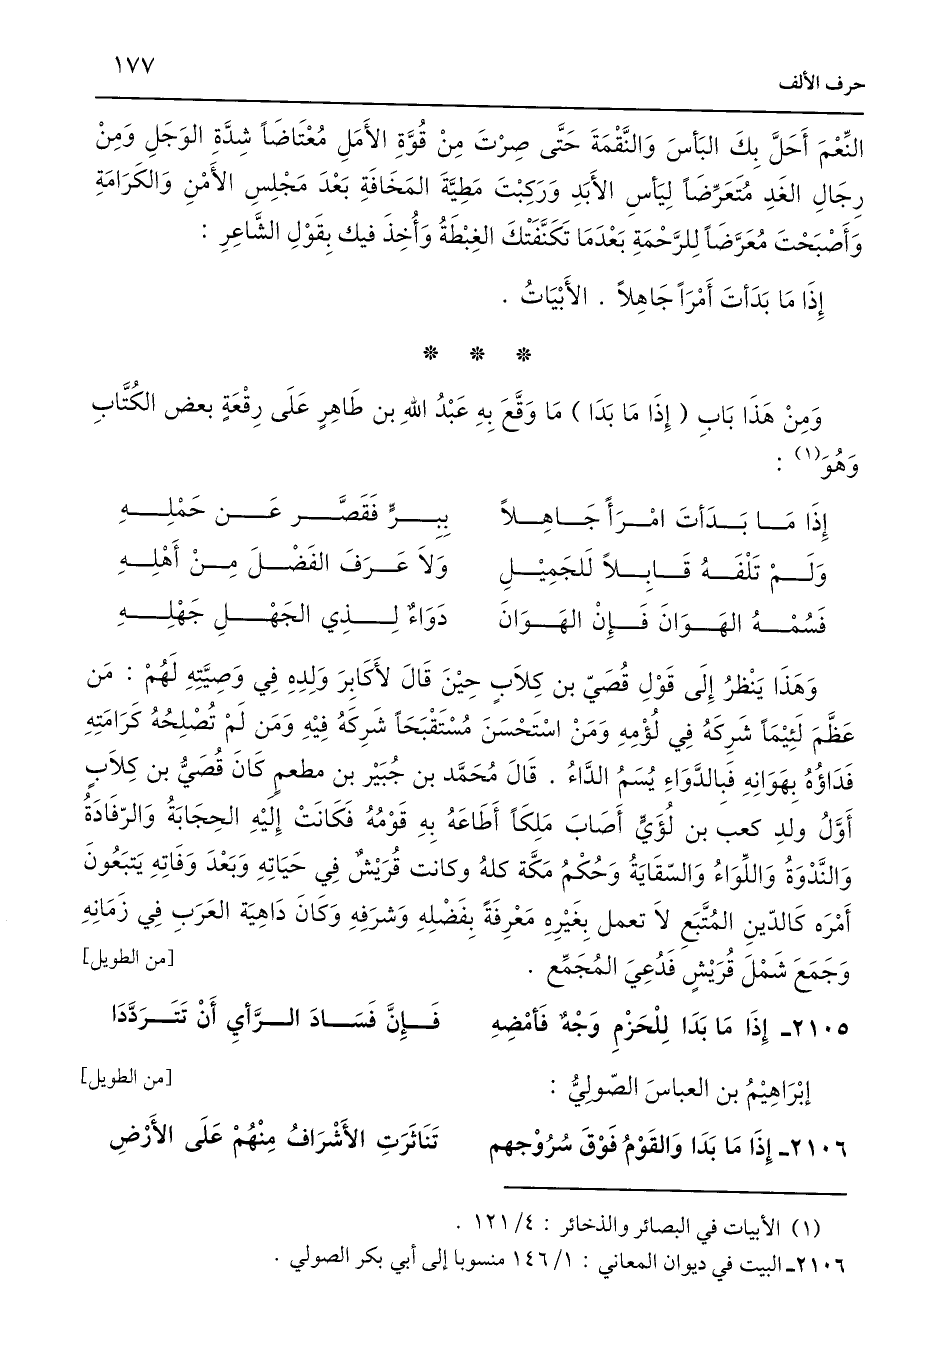 ١٧٧
حرف الألف
النِّعْمَ أَحَلَّ بِكَ البَأسَ وَالنَّقْمَةَ حَتَّى صِرْتَ مِنْ قُوَّةِ الأَمَلِ مُعْتَاضَاً شِدَّةِ الوَجَلِ وَمِنْ
رِجَالِ الغَدِ مُتَعَرِّضَاً لِيَأسِ الأَبَدِ وَرَكِبْتَ مَطِيَّةَ المَخَافَةِ بَعْدَ مَجْلِسِ الأَمْنِ وَالكَرَامَةِ
وَأَصْبَحْتَ مُعَرَّضَاً لِلرَّحْمَةِ بَعْدَمَا تَكَنَّفَتْكَ الغِبْطَةُ وَأُخِذَ فيك بِقَوْلِ الشَّاعِرِ :
إِذَا مَا بَدَأتَ أَمْرَاً جَاهِلاً . الأَبْيَاتُ .
* * *
وَمِنْ هَذَا بَابِ ( إِذَا مَا بَدَا ) مَا وَقَّعَ بِهِ عَبْدُ اللهِ بن طَاهِرٍ عَلَى رِقْعَةِ بعض الكُتَّابِ
وَهُوَ(١) :
إِذَا مَـا بَـدَأتَ امْـرَأً جَـاهِـلاً بِبِـرٍّ فَقَصَّـرِ عَـن حَمْلِـهِ
وَلَـمْ تَلْفَـهُ قَـابِـلاً لَلجَمِيْـلِ وَلاَ عَـرَفَ الفَضْـلَ مِـنْ أَهْلِـهِ
فَسُمْـهُ الهَـوَانَ فَـإِنْ الهَـوَانَ دَوَاءٌ لِـذِي الجَهْـلِ جَهْلِـهِ
وَهَذَا يَنْظرُ إِلَى قَوْلِ قُصَيّ بن كِلاَبٍ حِيْنَ قَالَ لأَكَابِرَ وَلِدِهِ فِي وَصِيَّتِهِ لَهُمْ : مَن
عَظَّمَ لَئِيْمَاً شَرِكَهُ فِي لُؤْمِهِ وَمَنْ اسْتَحْسَنَ مُسْتَقْبَحَاً شَرِكَهُ فِيْهِ وَمَن لَمْ تُصْلحُهُ كَرَامَتِهِ
فَدَاؤُهُ بِهَوَانِهِ فَبِالدَّوَاءِ يُسَمُ الدَّاءُ . قَالَ مُحَمَّد بن جُبَيْر بن مطعمٍ كَانَ قُصَيُّ بن كِلاَبٍ
أَوَّلُ ولدِ كعب بن لُؤَيٍّ أَصَابَ مَلِكَاً أَطَاعَهُ بِهِ قَوْمُهُ فَكَانَتْ إِلَيْهِ الحِجَابَةُ وَالرّفَادَةُ
وَالنَّدْوَةُ وَاللِّوَاءُ وَالسّقَايَةُ وَحُكْمُ مَكَّة كلهُ وكانت قُرَيْشٌ فِي حَيَاتِهِ وَبَعْدَ وَفَاتِهِ يَتبَعُونَ
أَمْرَه كَالدّينِ المُتَّبَعِ لاَ تعمل بِغَيْرِهِ مَعْرِفَةً بِفَضْلِهِ وَشَرَفِهِ وَكَانَ دَاهِيَة العَرَبِ فِي زَمَانِهِ
وَجَمَعَ شَمْلَ قُرَيْشٍ فَدُعِيَ المُجَمِّعِ . [من الطويل]
٢١٠٥ـ إِذَا مَا بَدَا لِلْحَزْمِ وَجْهٌ فَأمْضِهِ فَـإِنَّ فَسَـادَ الـرَّأيِ أَنْ تَتَـرَدَّدَا
إبْرَاهِيْمُ بن العباسَ الصّوليُّ : [من الطويل]
٢١٠٦ـ إِذَا مَا بَدَا وَالقَوْمُ فَوْقَ سُرُوْجِهم تَنَاثَرَتِ الأَشْرَافُ مِنْهُمْ عَلَى الأَرْضِ
(١) الأبيات في البصائر والذخائر : ٤/ ١٢١ .
٢١٠٦ـ البيت في ديوان المعاني : ١/ ١٤٦ منسوبا إلى أبي بكر الصولي .